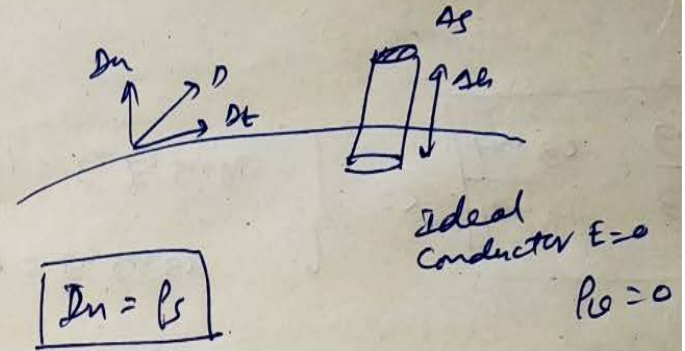 Dn
D
Dt
ΔS
Δh
Ideal
Conductor E=0
ρv=0
Dn = ρs